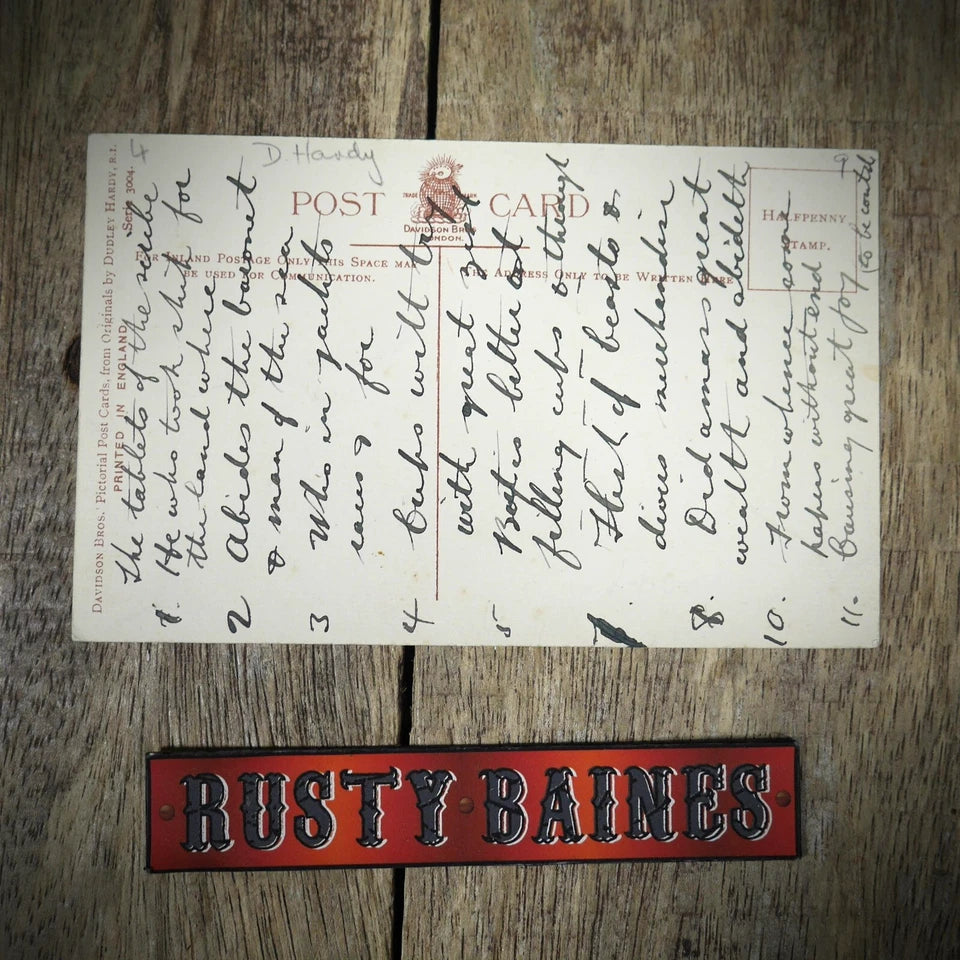 DAVIDSON BROS.' PICTORIAL POST CARDS, FROM ORIGINALS BY DUDLEY HARDY, R.I.
SERIES 3004.
PRINTED IN ENGLAND
4
D. Hardy
POST CARD
TRADE MARK
DAVIDSON BROS
LONDON.
FOR INLAND POSTAGE ONLY THIS SPACE MAY
BE USED FOR COMMUNICATION.
THE ADDRESS ONLY TO BE WRITTEN HERE
HALFPENNY
STAMP.
The tablets of the scribe
1. He who took ship for
the land where
2 Abides the baronet
& man of the sea
3 Who in yachts
saus & for
4 Cups wilt
with great
5 But is better at
filling cubs o' though
Flesh of beasts o
divers
8. Did amass great
wealth and ability
10. From whence
papers without end
11. Causing great joy
(to be contd
RUSTY BAINES